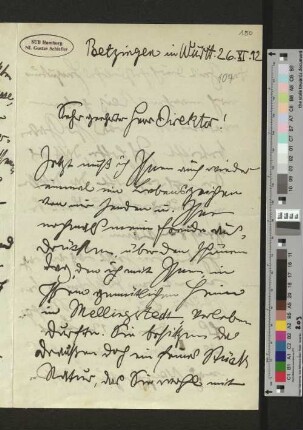 180
SUB Hamburg
Nl. Gustav Schiefler
Betzingen in Württ. 26.XI.12
107
Sehr geehrter Herr Direktor!
Jetzt muß ich Ihnen auch wieder
einmal ein Lebenszeichen
von mir senden u. Ihnen
nochmals meine Freude aus-
drücken über den schönen
Tag, den ich mit Ihnen in
Ihrem gemütlichen Heime
in Mellingstedt verleben
durfte. Sie besitzen da
draußen doch ein feines Stück
Natur, das Sie wohl mit